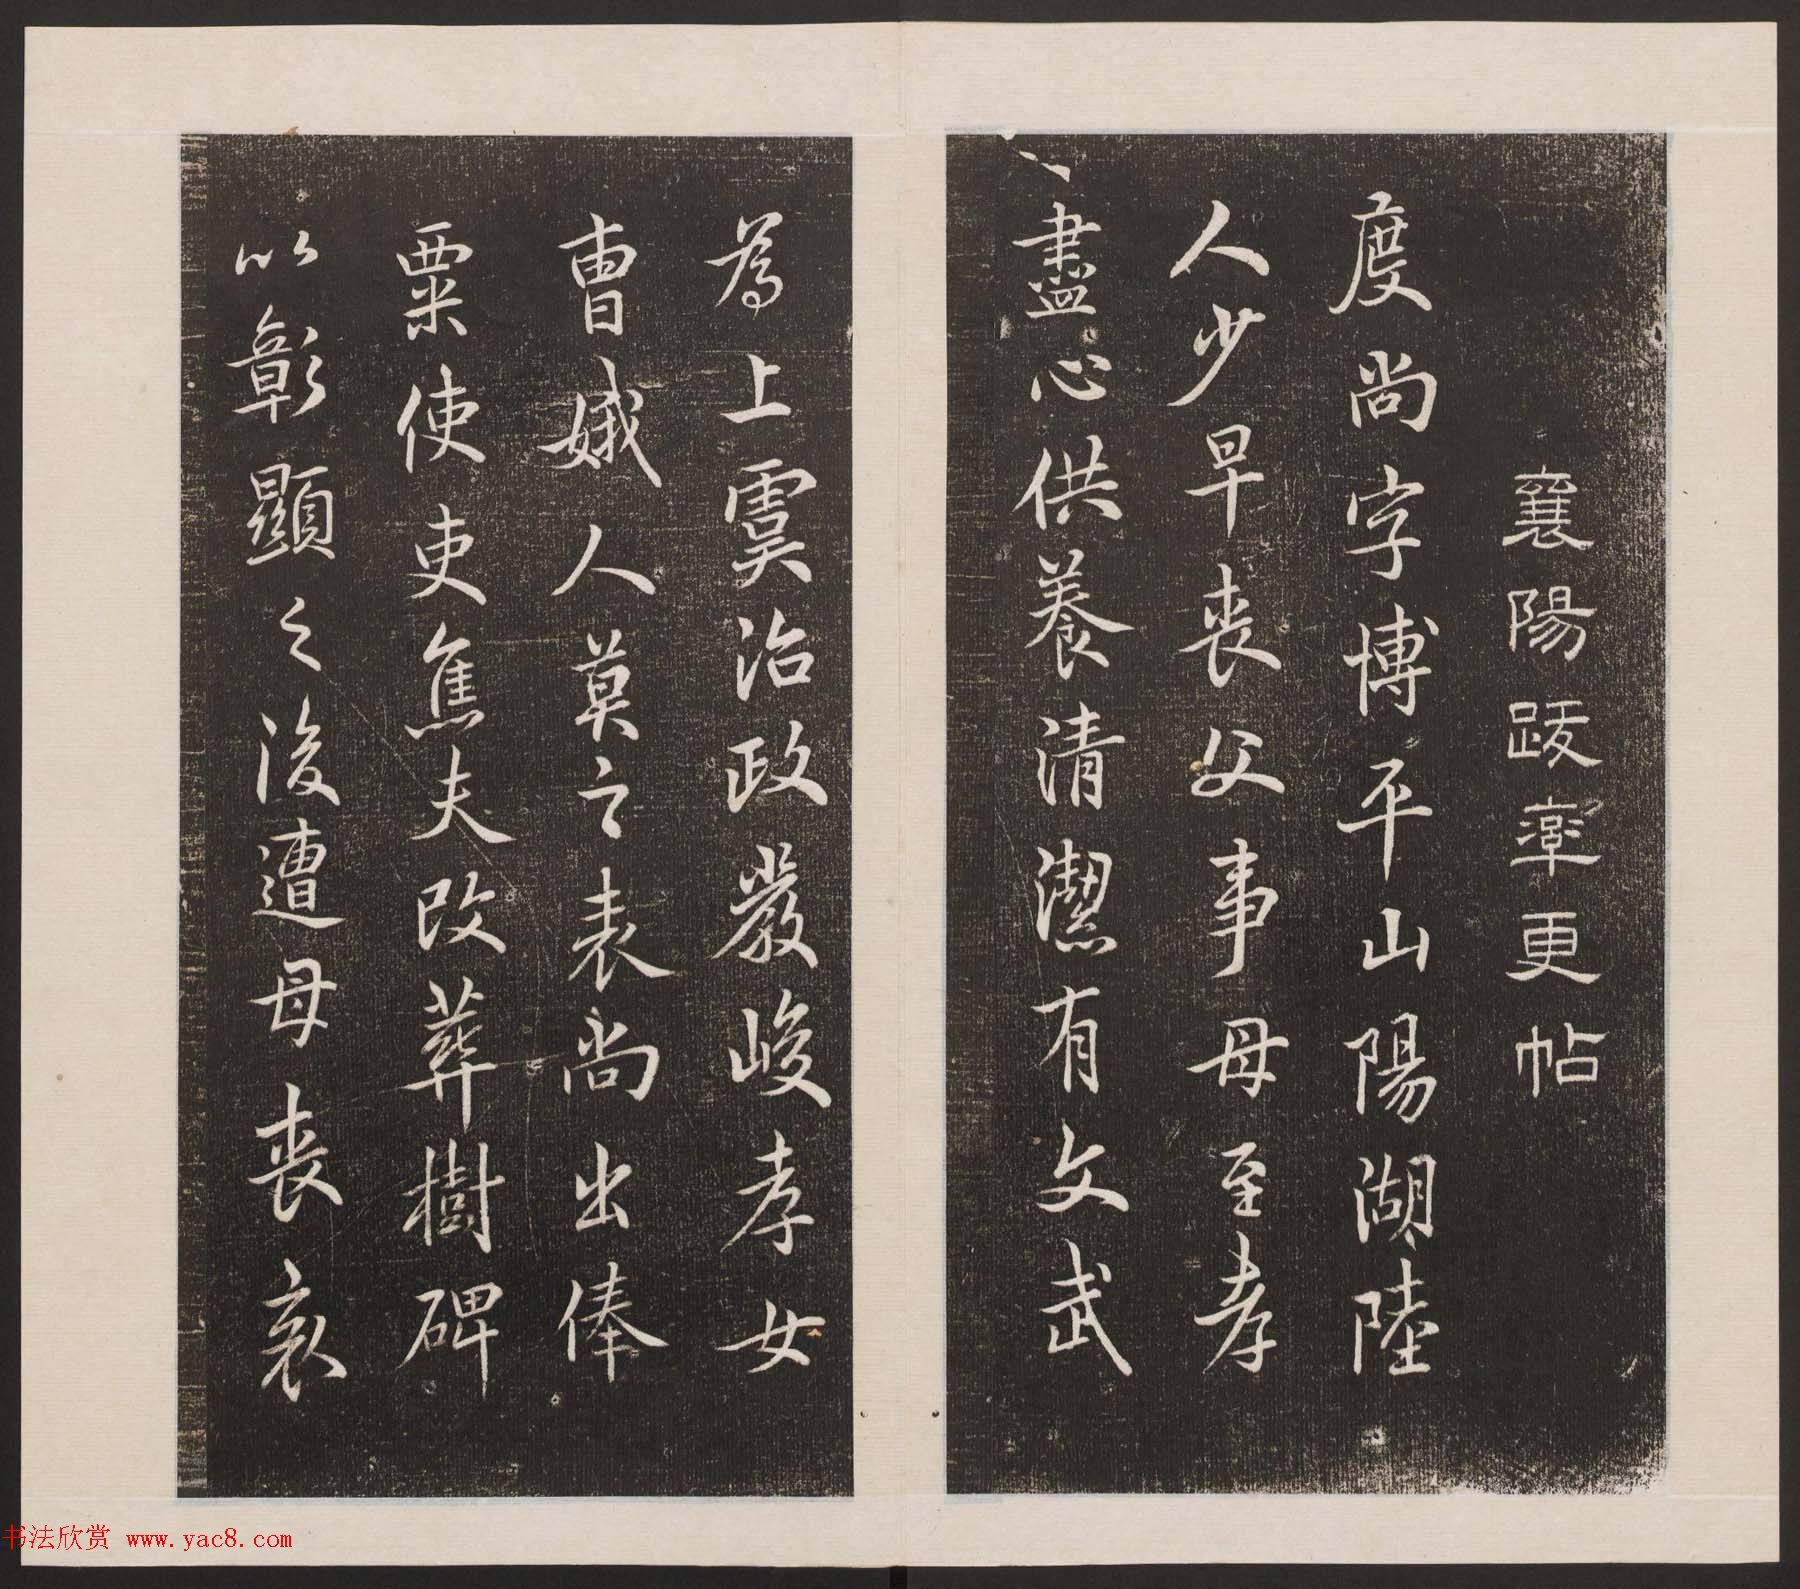 襄陽跋率更帖
度尚字博平山陽湖陸
人少早丧父事母至孝
盡心供養清潔有文武
為上虞治政嚴峻孝女
曹娥人莫之表尚出俸
粟使吏焦夫改葬樹碑
以彰顯之後遭母丧哀
书法欣赏 www.yac8.com